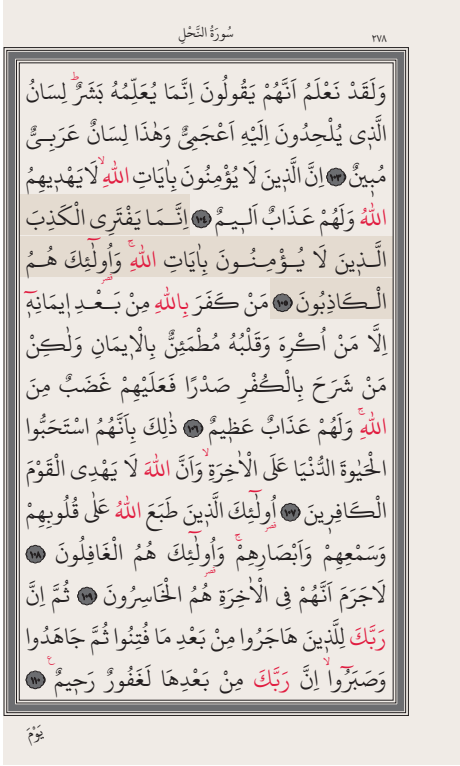 سُورَةُ النَّحْلِ ٢٧٨
وَلَقَدْ نَعْلَمُ اَنَّهُمْ يَقُولُونَ اِنَّمَا يُعَلِّمُهُ بَشَرٌۜ لِسَانُ
الَّذ۪ى يُلْحِدُونَ اِلَيْهِ اَعْجَمِىٌّ وَهٰذَا لِسَانٌ عَرَبِىٌّ
مُب۪ينٌ ﴿١٠٣﴾ اِنَّ الَّذ۪ينَ لَا يُؤْمِنُونَ بِاٰيَاتِ اللّٰهِۙ لَا يَهْد۪يهِمُ
اللّٰهُ وَلَهُمْ عَذَابٌ اَل۪يمٌ ﴿١٠٤﴾ اِنَّمَا يَفْتَرِى الْكَذِبَ
الَّذ۪ينَ لَا يُؤْمِنُونَ بِاٰيَاتِ اللّٰهِۚ وَاُو۬لٰٓئِكَ هُمُ
الْكَاذِبُونَ ﴿١٠٥﴾ مَنْ كَفَرَ بِاللّٰهِ مِنْ بَعْدِ ا۪يمَانِه۪ٓ
اِلَّا مَنْ اُكْرِهَ وَقَلْبُهُ مُطْمَئِنٌّ بِالْا۪يمَانِ وَلٰكِنْ
مَنْ شَرَحَ بِالْكُفْرِ صَدْرًا فَعَلَيْهِمْ غَضَبٌ مِنَ
اللّٰهِۚ وَلَهُمْ عَذَابٌ عَظ۪يمٌ ﴿١٠٦﴾ ذٰلِكَ بِاَنَّهُمُ اسْتَحَبُّوا
الْحَيٰوةَ الدُّنْيَا عَلَى الْاٰخِرَةِۙ وَاَنَّ اللّٰهَ لَا يَهْدِى الْقَوْمَ
الْكَافِر۪ينَ ﴿١٠٧﴾ اُو۬لٰٓئِكَ الَّذ۪ينَ طَبَعَ اللّٰهُ عَلٰى قُلُوبِهِمْ
وَسَمْعِهِمْ وَاَبْصَارِهِمْۚ وَاُو۬لٰٓئِكَ هُمُ الْغَافِلُونَ ﴿١٠٨﴾
لَاجَرَمَ اَنَّهُمْ فِى الْاٰخِرَةِ هُمُ الْخَاسِرُونَ ﴿١٠٩﴾ ثُمَّ اِنَّ
رَبَّكَ لِلَّذ۪ينَ هَاجَرُوا مِنْ بَعْدِ مَا فُتِنُوا ثُمَّ جَاهَدُوا
وَصَبَرُٓواۙ اِنَّ رَبَّكَ مِنْ بَعْدِهَا لَغَفُورٌ رَح۪يمٌ۟ ﴿١١٠﴾
يَوْمَ